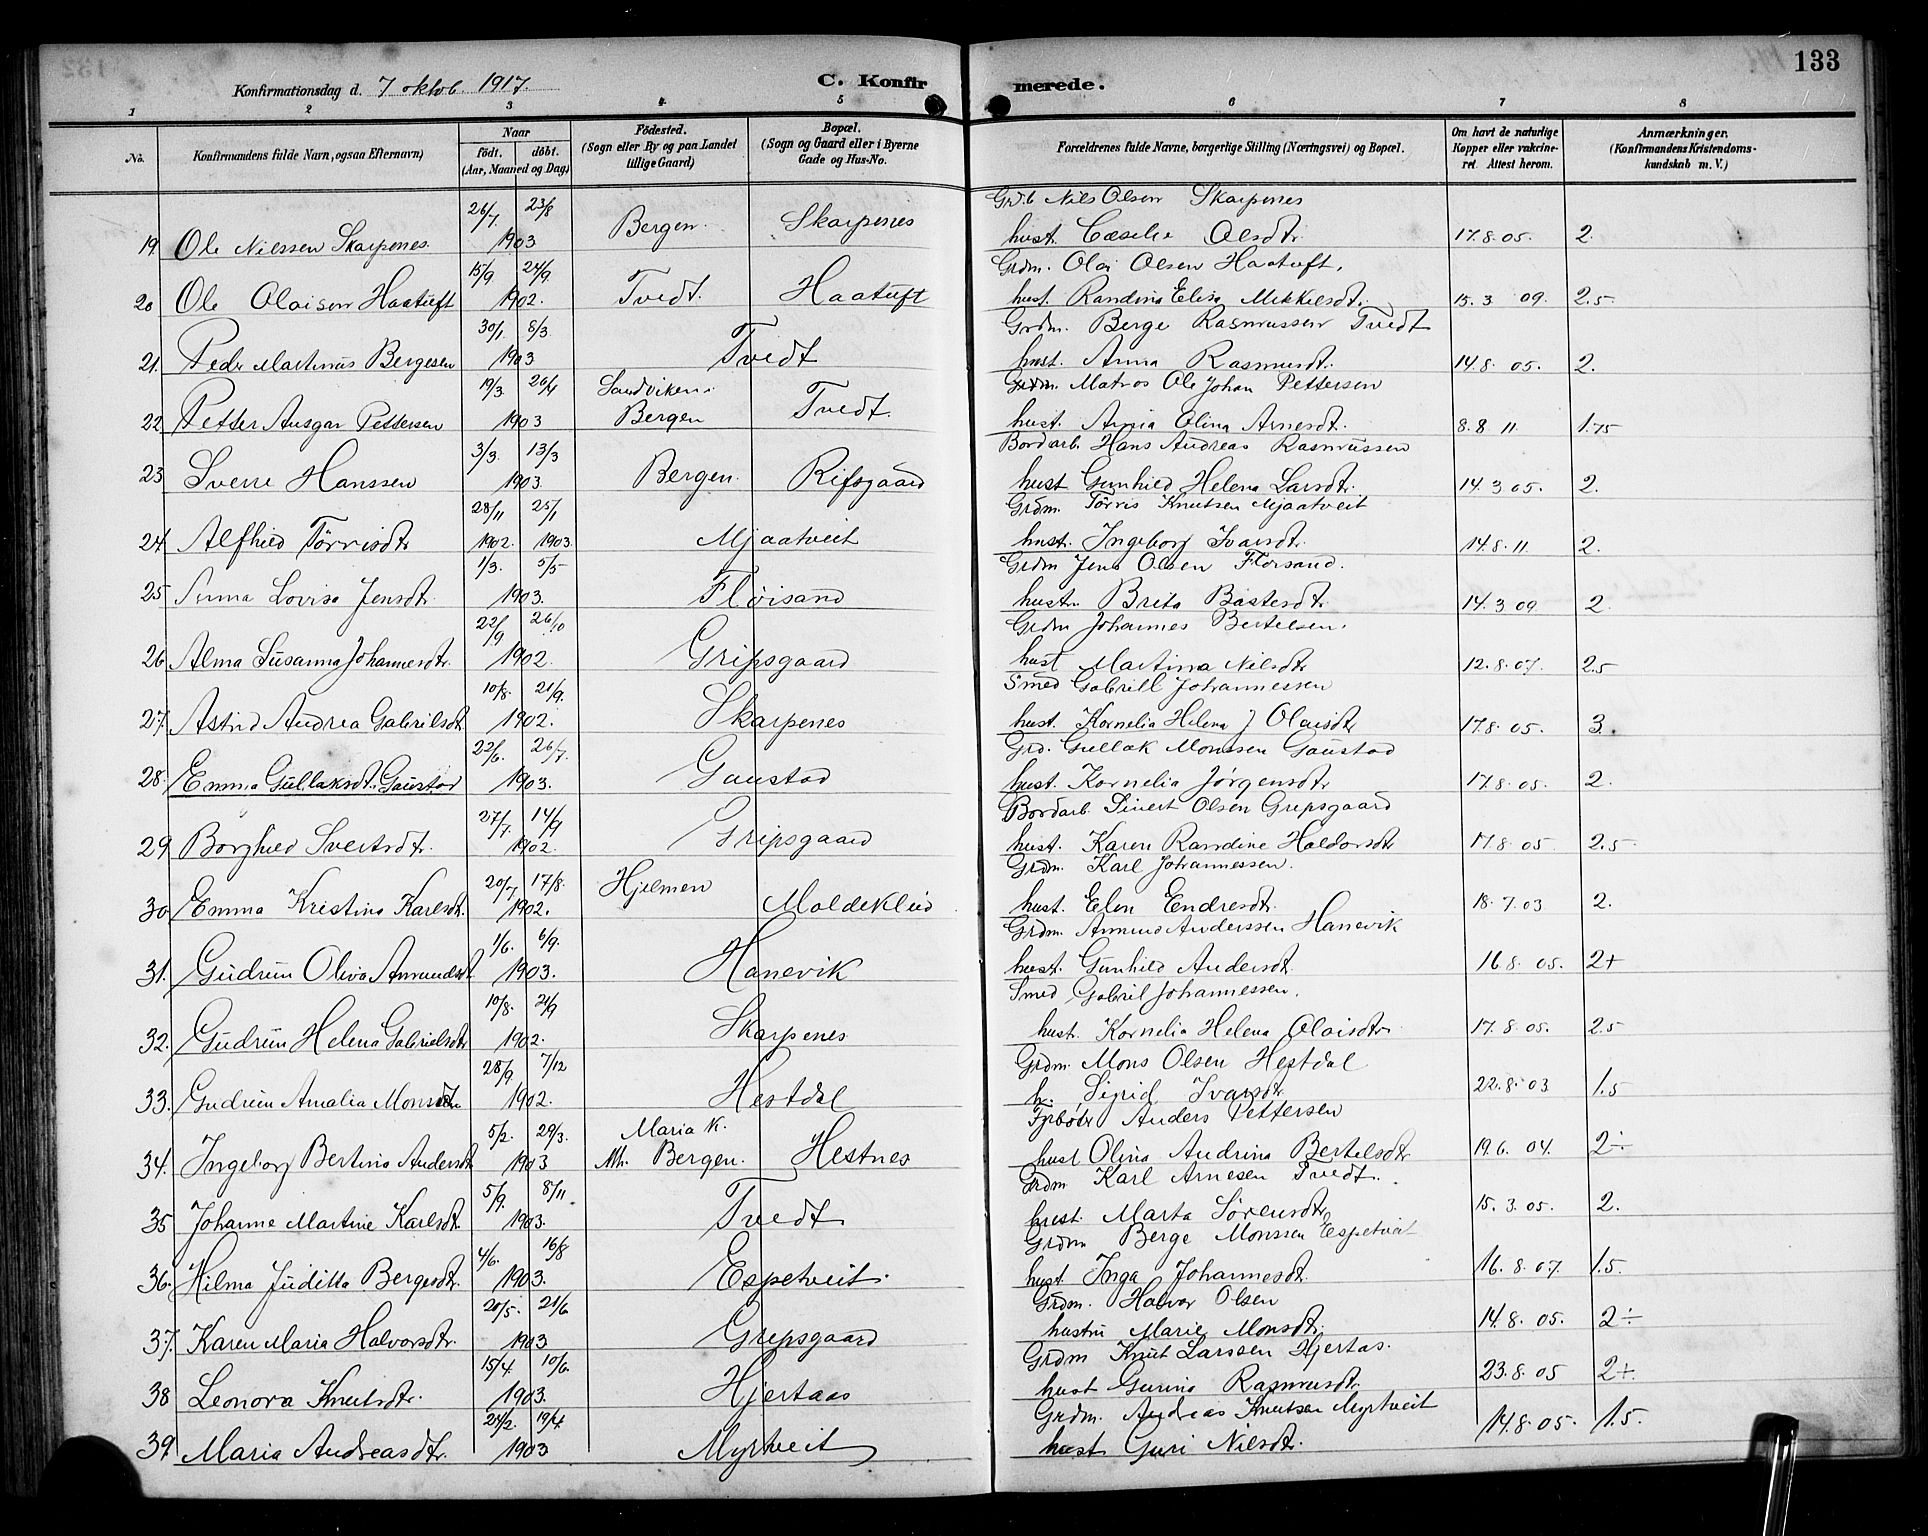 133
Konfirmationsdag d. 7 oktob. 1917. C. Konfirmerede.
1 2 3 4 5 6 7 8
No. Konfirmandens fulde Navn, (ogsaa Efternavn) Naar født. døbt. (Aar, Maaned og Dag) Fødested. (Sogn eller By og paa Landet tillige Gaard) Bopæl. (Sogn og Gaard eller i Byerne Gade og Hus-No. Forældrenes fulde Navne, borgerlige Stilling (Næringsvei) og Bopæl. Om havt de naturlige Kopper eller vakcineret. Attest herom. Anmærkninger. (Konfirmandens Kristendomskundskab m. V.)
Grdb Nils Olsen Skarpenes
19. Ole Nilssen Skarpenes. 26/7. 23/8 1903 Bergen. Skarpenes hust. Cæselie Olsdtr. 17.8.05. 2.
Grdm. Olai Olsen Haatuft.
20 Ole Olaisen Haatuft 15/9 24/9. 1902. Tvedt. Haatuft hust. Randina Elisa Mikkelsdtr. 15.3 09. 2.5
Grdm. Berge Rasmussen Tvedt
21. Peder Martinus Bergesen 30/1. 8/3 1903 Tvedt hust. Anna Rasmusdtr. 14.8. 05. 2.
Matros Ole Johan Pettersen
22 Petter Ansgar Pettersen 19/3. 26/4 1903 Sandviken Bergen Tvedt. hust. Anna Olina Arnesdtr. 8.8 11. 1.75
Bordarb. Hans Andreas Rasmussen
23 Sverre Hanssen 3/3. 13/3 1903. Bergen. Rifsgaard hust Gunhild Helena Larsdtr. 14.3 05. 2.
Grdm. Tørris Knutsen Mjaatveit
24. Alfhild Tørrisdtr 28/11 25/1 1902. 1903. Mjaatveit hust. Ingeborg Ivarsdtr. 14.8.11. 2.
Grdm Jens Olsen Florsand.
25 Anna Lovisa Jensdtr. 1/3. 5/5 1903. Fløisand hustr. Brita Bastesdtr. 14.3 09 2.
Grdm Johannes Bertelsen.
26 Alma Susanna Johannesdtr. 22/9 26/10 1902. Gripsgaard hust Martina Nilsdtr 12.8.07. 2.5
Smed Gabriell Johannessen
27. Astrid Andrea Gabrielsdtr. 10/8. 21/9. 1902. Skarpenes hust. Kornelia Helena J Olaisdtr 17.8.05. 3.
Grd. Gullak Monssen Gaustad
28. Emma Gullaksdt. Gaustad 22/6. 26/7. 1903. Gaustad hust. Kornelia Jørgensdtr 17.8.05. 2.
Bordarb. Sivert Olsen Gripsgaard
29 Borghild Svertsdtr. 27/7. 14/9 1902. Gripsgaard hust. Karen Randine Haldorsdtr 17.8.05. 2.5
Grdm. Karl Johannessen.
30 Emma Kristina Karlsdtr. 20/7 17/8. 1902. Hjelmen Moldekleiv hust. Elen Endresdtr. 18.7.03 2.
Grdm. Anmund Anderssen Hanevik
31. Gudrun Oliva Anmundsdtr 1/6. 6/9. 1903. Hanevik hust. Gunhild Andersdtr. 16.8. 05. 2+
Smed Gabriel Johannessen.
32. Gudrun Helena Gabrielsdtr 10/8. 21/9 1902. Skarpenes hust. Kornelia Helena Olaisdtr. 17.8.05. 2.5
Grdm. Mons Olsen Hestdal
33. Gudrun Amalia Monsdtr 28/9. 7/12 1902. Hestdal h. Sigrid Ivarsdtr 22.8.03 1.5
Fyrbøter Anders Pettersen
34. Ingeborg Bertina Andersdtr 5/2. 29/3. 1903 Maria K. Bergen. Hestnes hust Olina Andrina Bertelsdtr 19.6. 04. 2÷
Grdm Karl Arnesen Tvedt.
35 Johanne Martine Karlsdtr. 5/9. 8/11 1903. Tvedt hust. Marta Sørensdtr 15.3.05. 2.
Grdm Berge Monssen Espetveit
36. Hilma Juditta Bergesdtr. 4/6. 16/8 1903. Espetveit. hust. Inga Johannesdtr. 16.8.07. 1.5.
Grdm. Halvor Olsen
37. Karen Maria Halvorsdtr. 20/5. 21/6 1903 Gripsgaard hustru Marie Monsdtr. 14.8.05. 2÷
Grdm Knut Larssen Hjertas.
38 Leonora Knutsdtr. 15/4. 10/6. 1903. Hjertaas hust Gurina Rasmusdtr. 23.8.05 2+.
Grdm. Andreas Knutsen Myrtveit
39. Maria Andreasdtr. 24/2. 19/4 1903 Myrtveit hust Guri Nilsdtr. 14.8.05. 1.5.